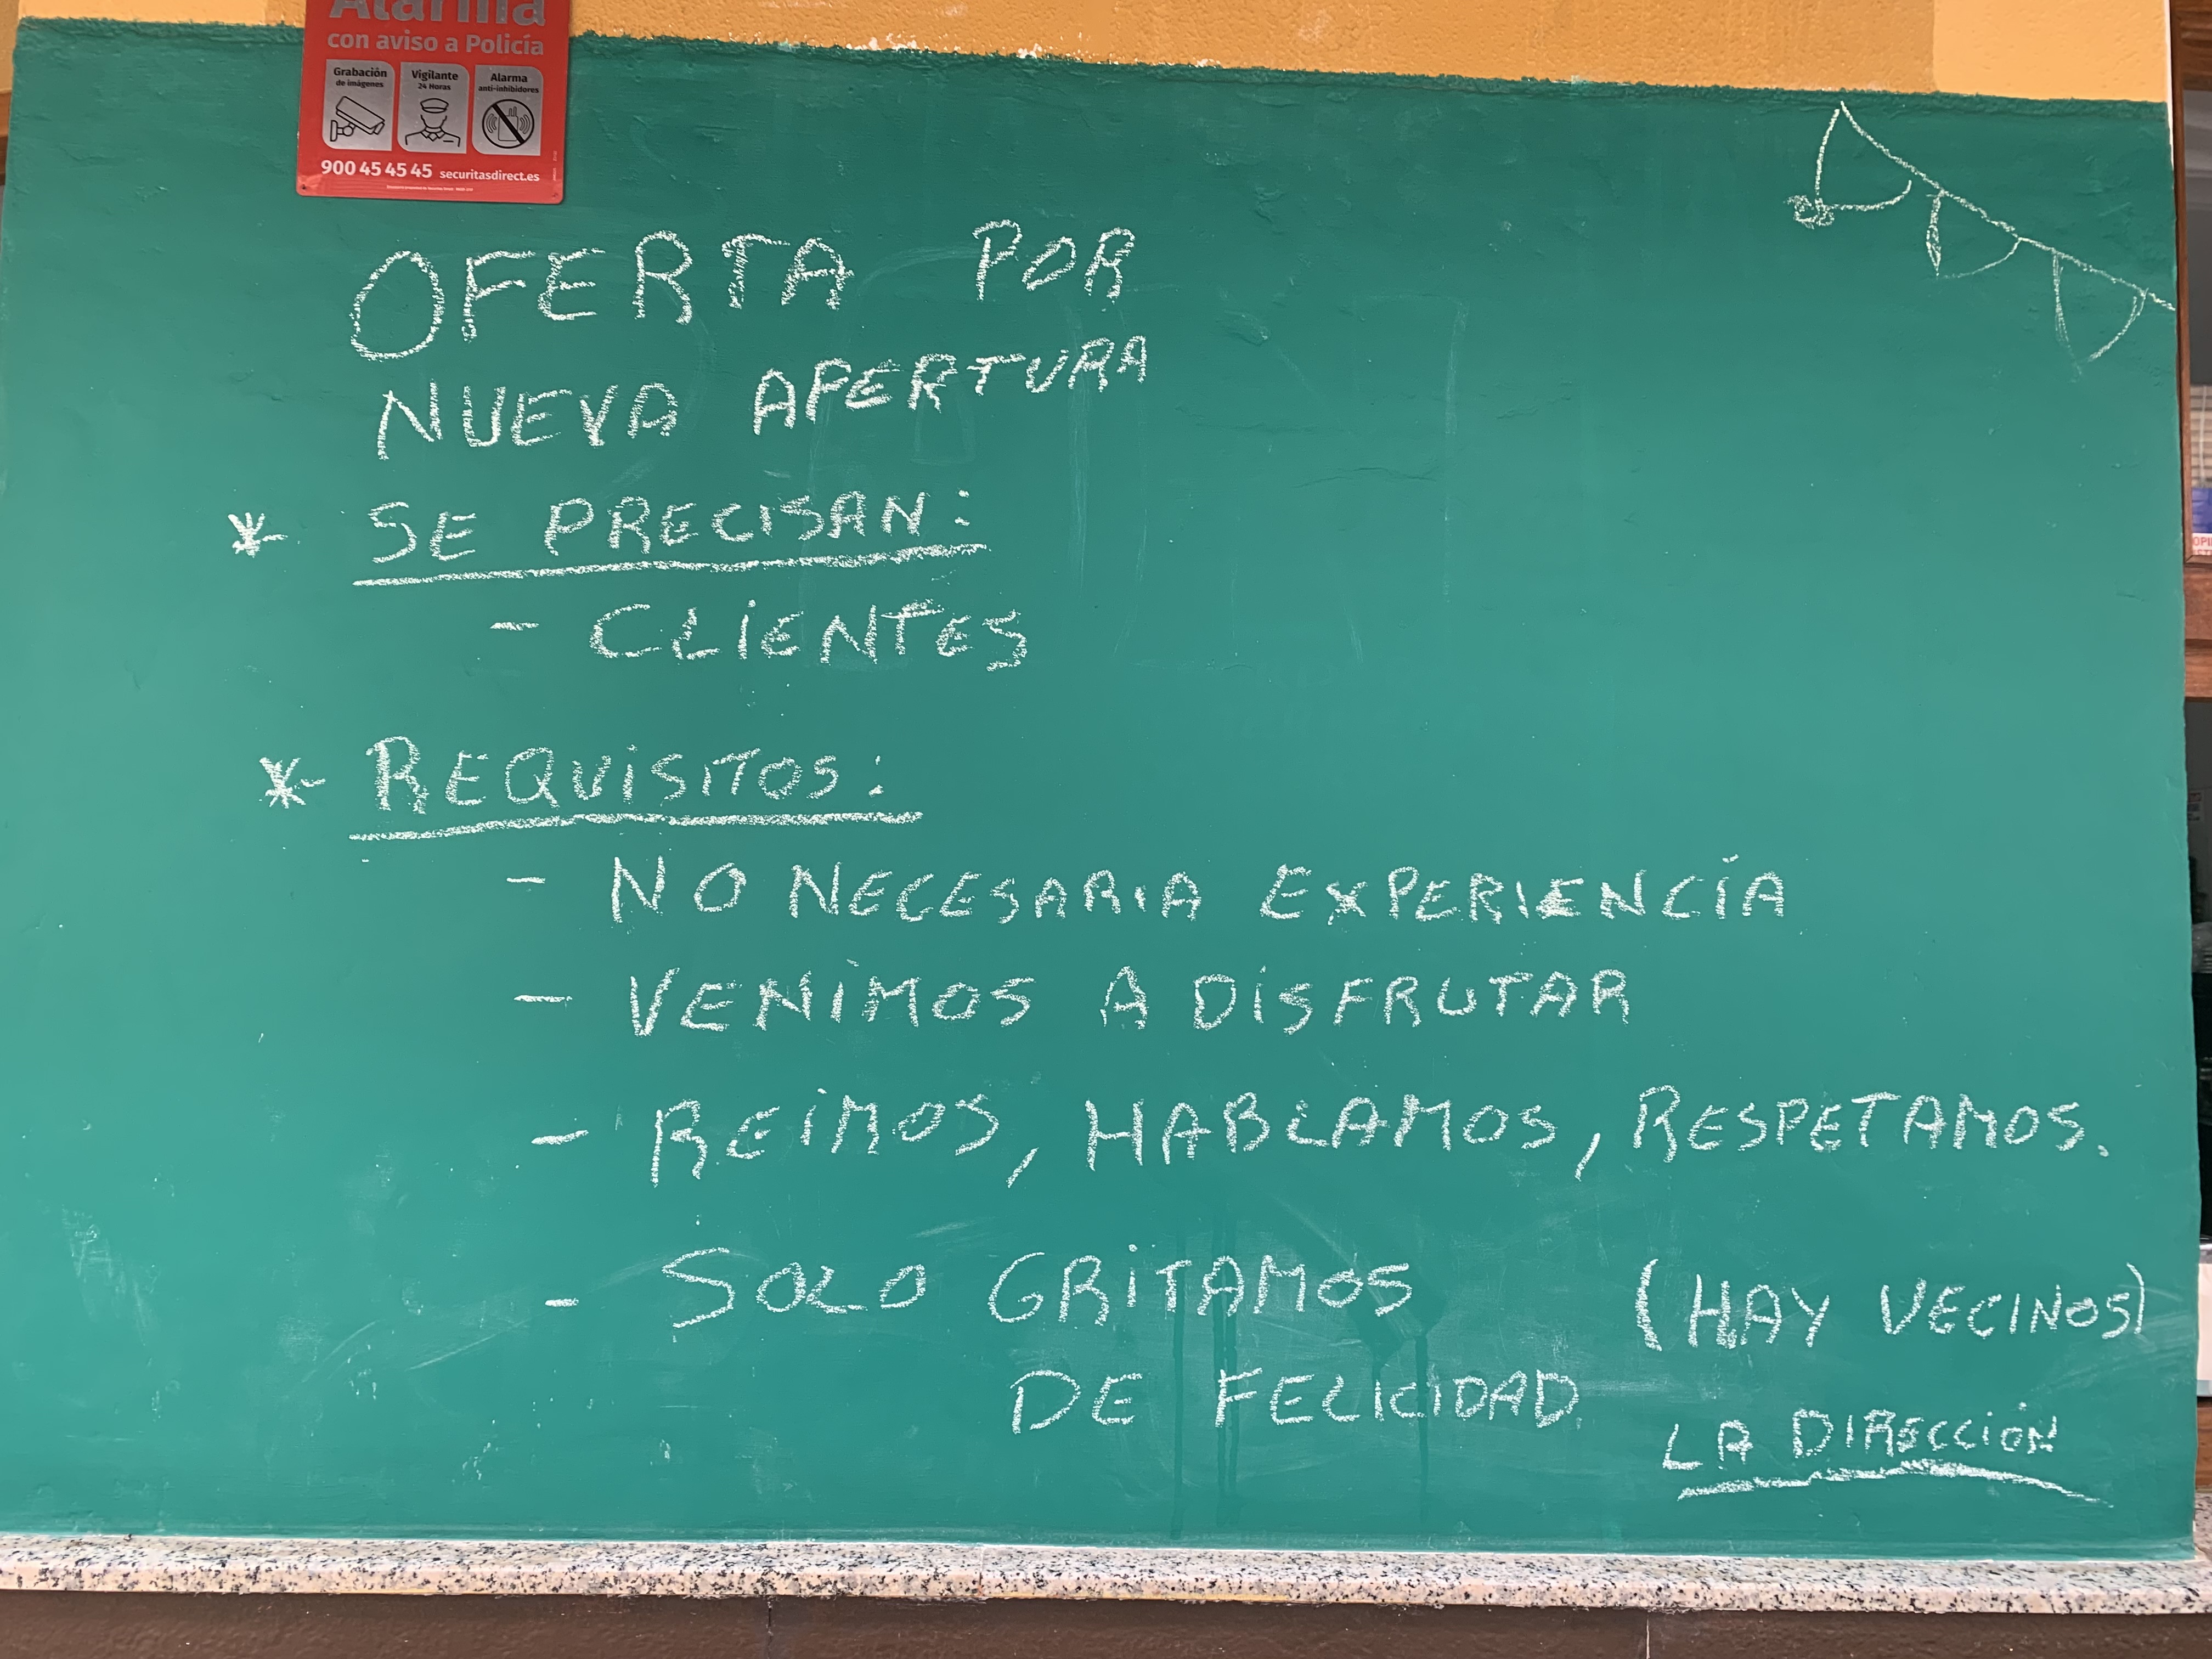 Alarma
con aviso a Policía
Grabación
de imágenes
Vigilante
24 Horas
Alarma
anti-inhibidores
900 45 45 45 securitasdirect.es
OFERTA POR
NUEVA APERTURA
* SE PRECISAN:
- CLIENTES
* REQUISITOS:
- NO NECESARIA EXPERIENCIA
- VENIMOS A DISFRUTAR
- REIMOS, HABLAMOS, RESPETAMOS.
- SOLO GRITAMOS (HAY VECINOS)
DE FELICIDAD
LA DIRECCIÓN